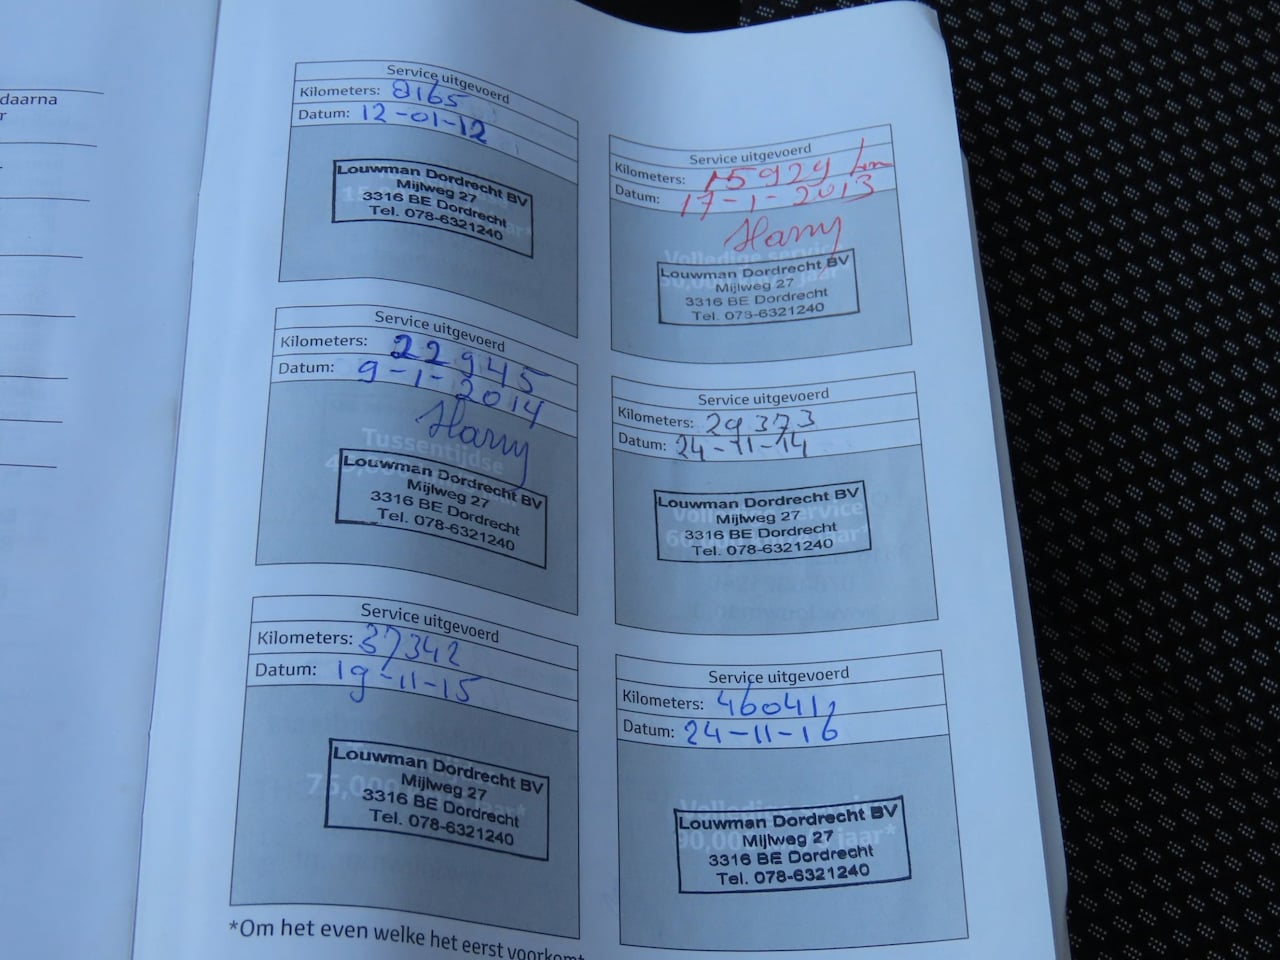 daarna
r
Service uitgevoerd
Kilometers: 8165
Datum: 12-01-12
Louwman Dordrecht BV
Mijlweg 27
3316 BE Dordrecht
Tel. 078-6321240
Service uitgevoerd
Kilometers: 15929 km
Datum: 17-1-2013
Harry
Volledige service
Louwman Dordrecht BV
Mijlweg 27
3316 BE Dordrecht
Tel. 078-6321240
Service uitgevoerd
Kilometers: 22945
Datum: 9-1-2014
Harry
Tussentijdse
Louwman Dordrecht BV
Mijlweg 27
3316 BE Dordrecht
Tel. 078-6321240
Service uitgevoerd
Kilometers: 29373
Datum: 24-11-14
Louwman Dordrecht BV
Volledige service
Mijlweg 27
3316 BE Dordrecht
Tel. 078-6321240
Service uitgevoerd
Kilometers: 37342
Datum: 19-11-15
Louwman Dordrecht BV
Mijlweg 27
75,000 jaar*
3316 BE Dordrecht
Tel. 078-6321240
Service uitgevoerd
Kilometers: 46041,
Datum: 24-11-16
Volledige service
Louwman Dordrecht BV
Mijlweg 27
90,000 jaar*
3316 BE Dordrecht
Tel. 078-6321240
*Om het even welke het eerst voorkomt